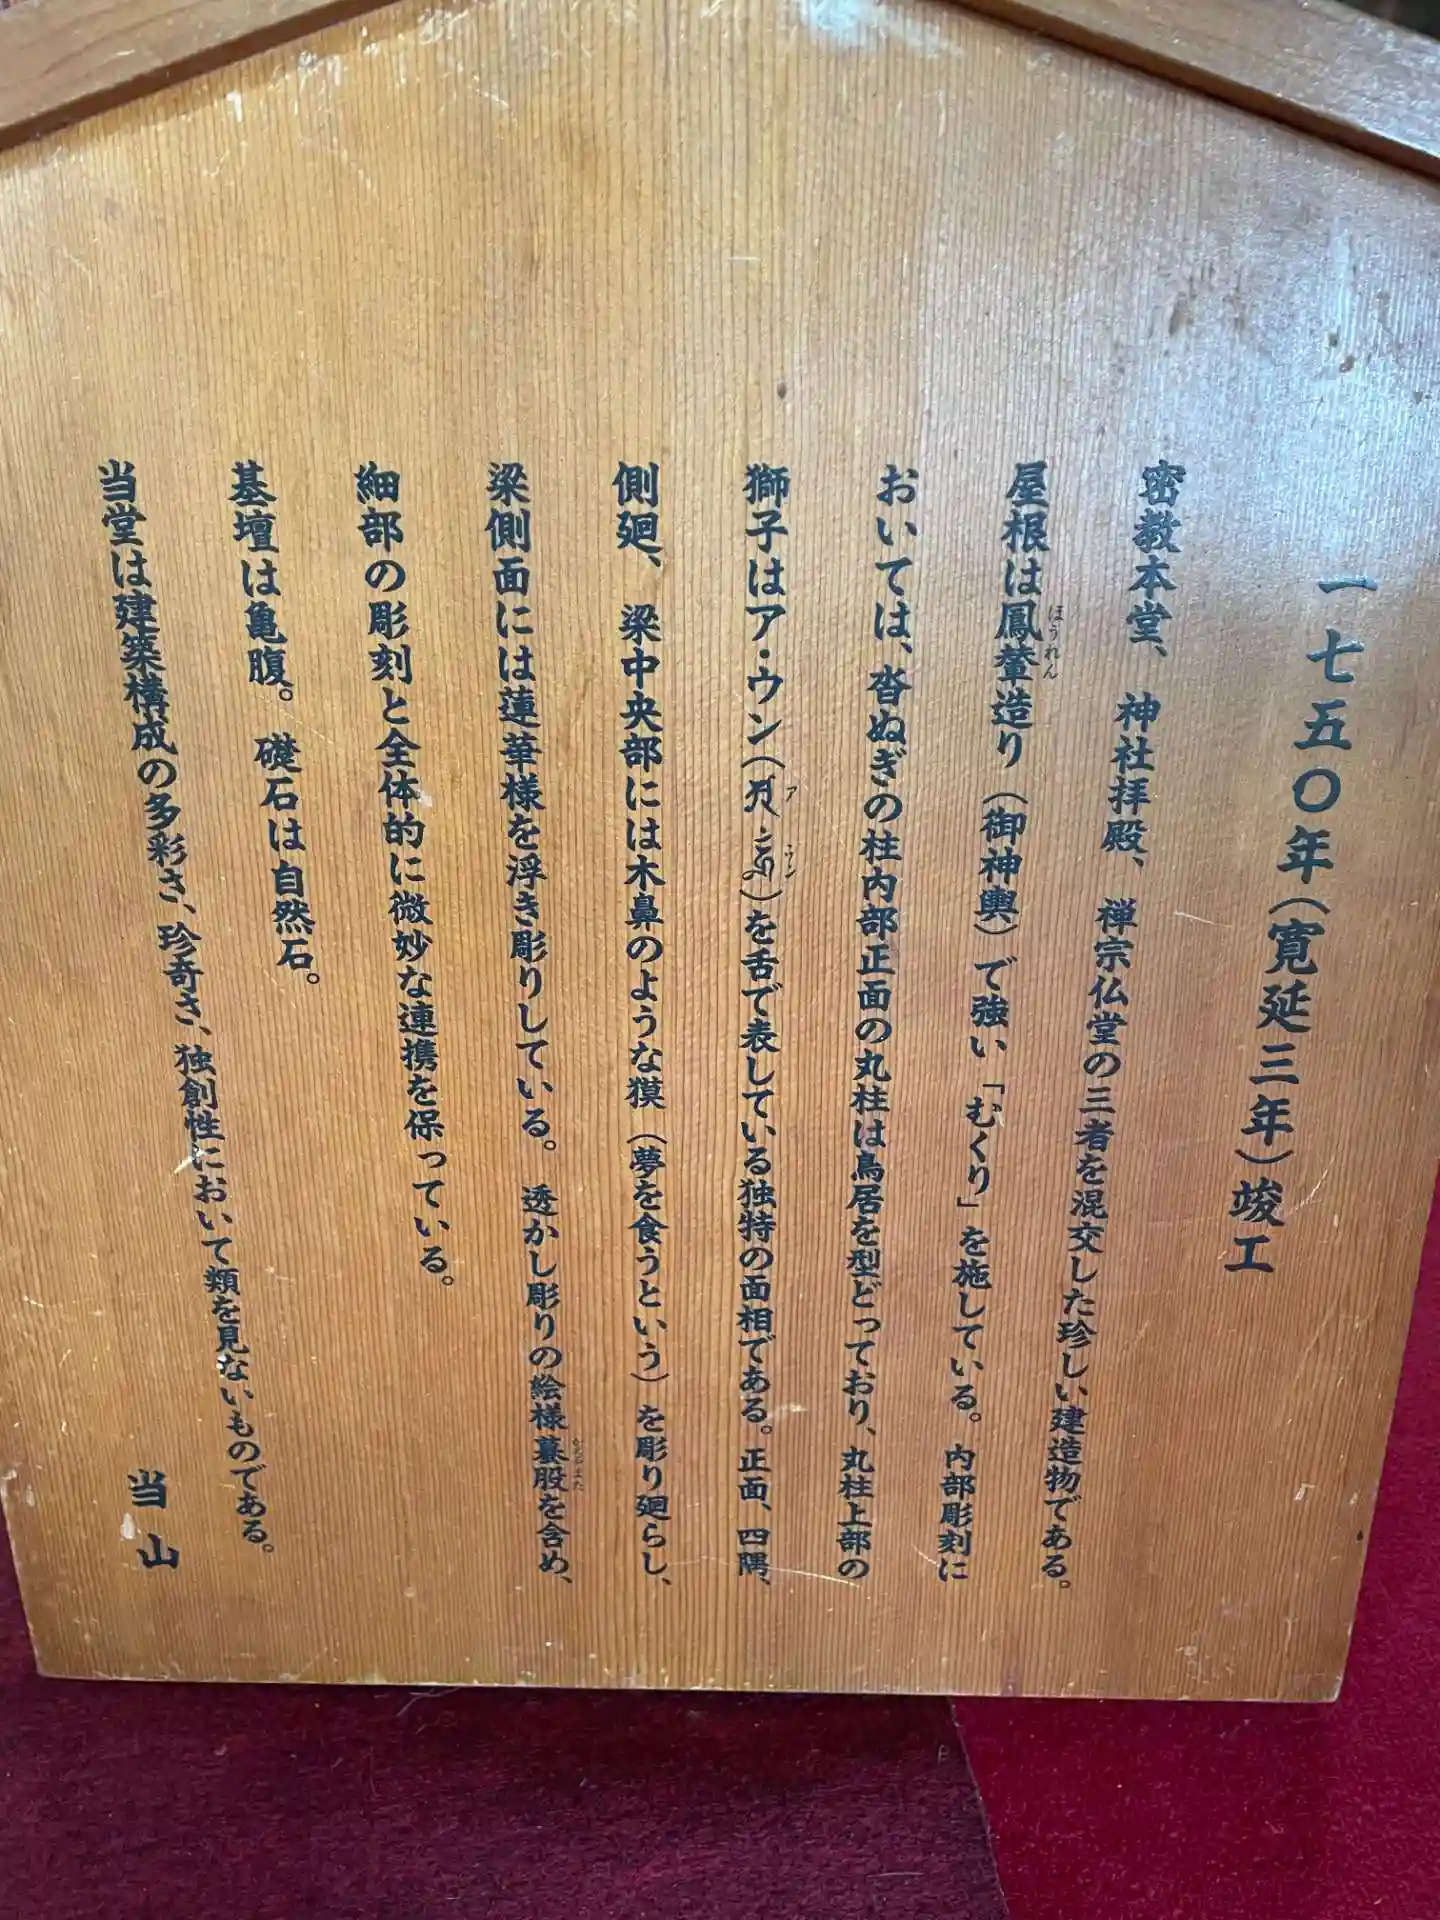 一七五〇年（寛延三年）竣工
密教本堂、神社拝殿、禅宗仏堂の三者を混交した珍しい建造物である。
屋根は鳳輦造り（御神輿）で強い「むくり」を施している。内部彫刻に
ほうれん
おいては、沓ぬぎの柱内部正面の丸柱は鳥居を型どっており、丸柱上部の
獅子はア・ウン（）を舌で表している独特の面相である。正面、四隅、
ア
ウン
側廻、梁中央部には木鼻のような獏（夢を食うという）を彫り廻らし、
梁側面には蓮華様を浮き彫りしている。透かし彫りの絵様蟇股を含め、
細部の彫刻と全体的に微妙な連携を保っている。
基壇は亀腹。礎石は自然石。
当堂は建築構成の多彩さ、珍奇さ、独創性において類を見ないものである。
当山